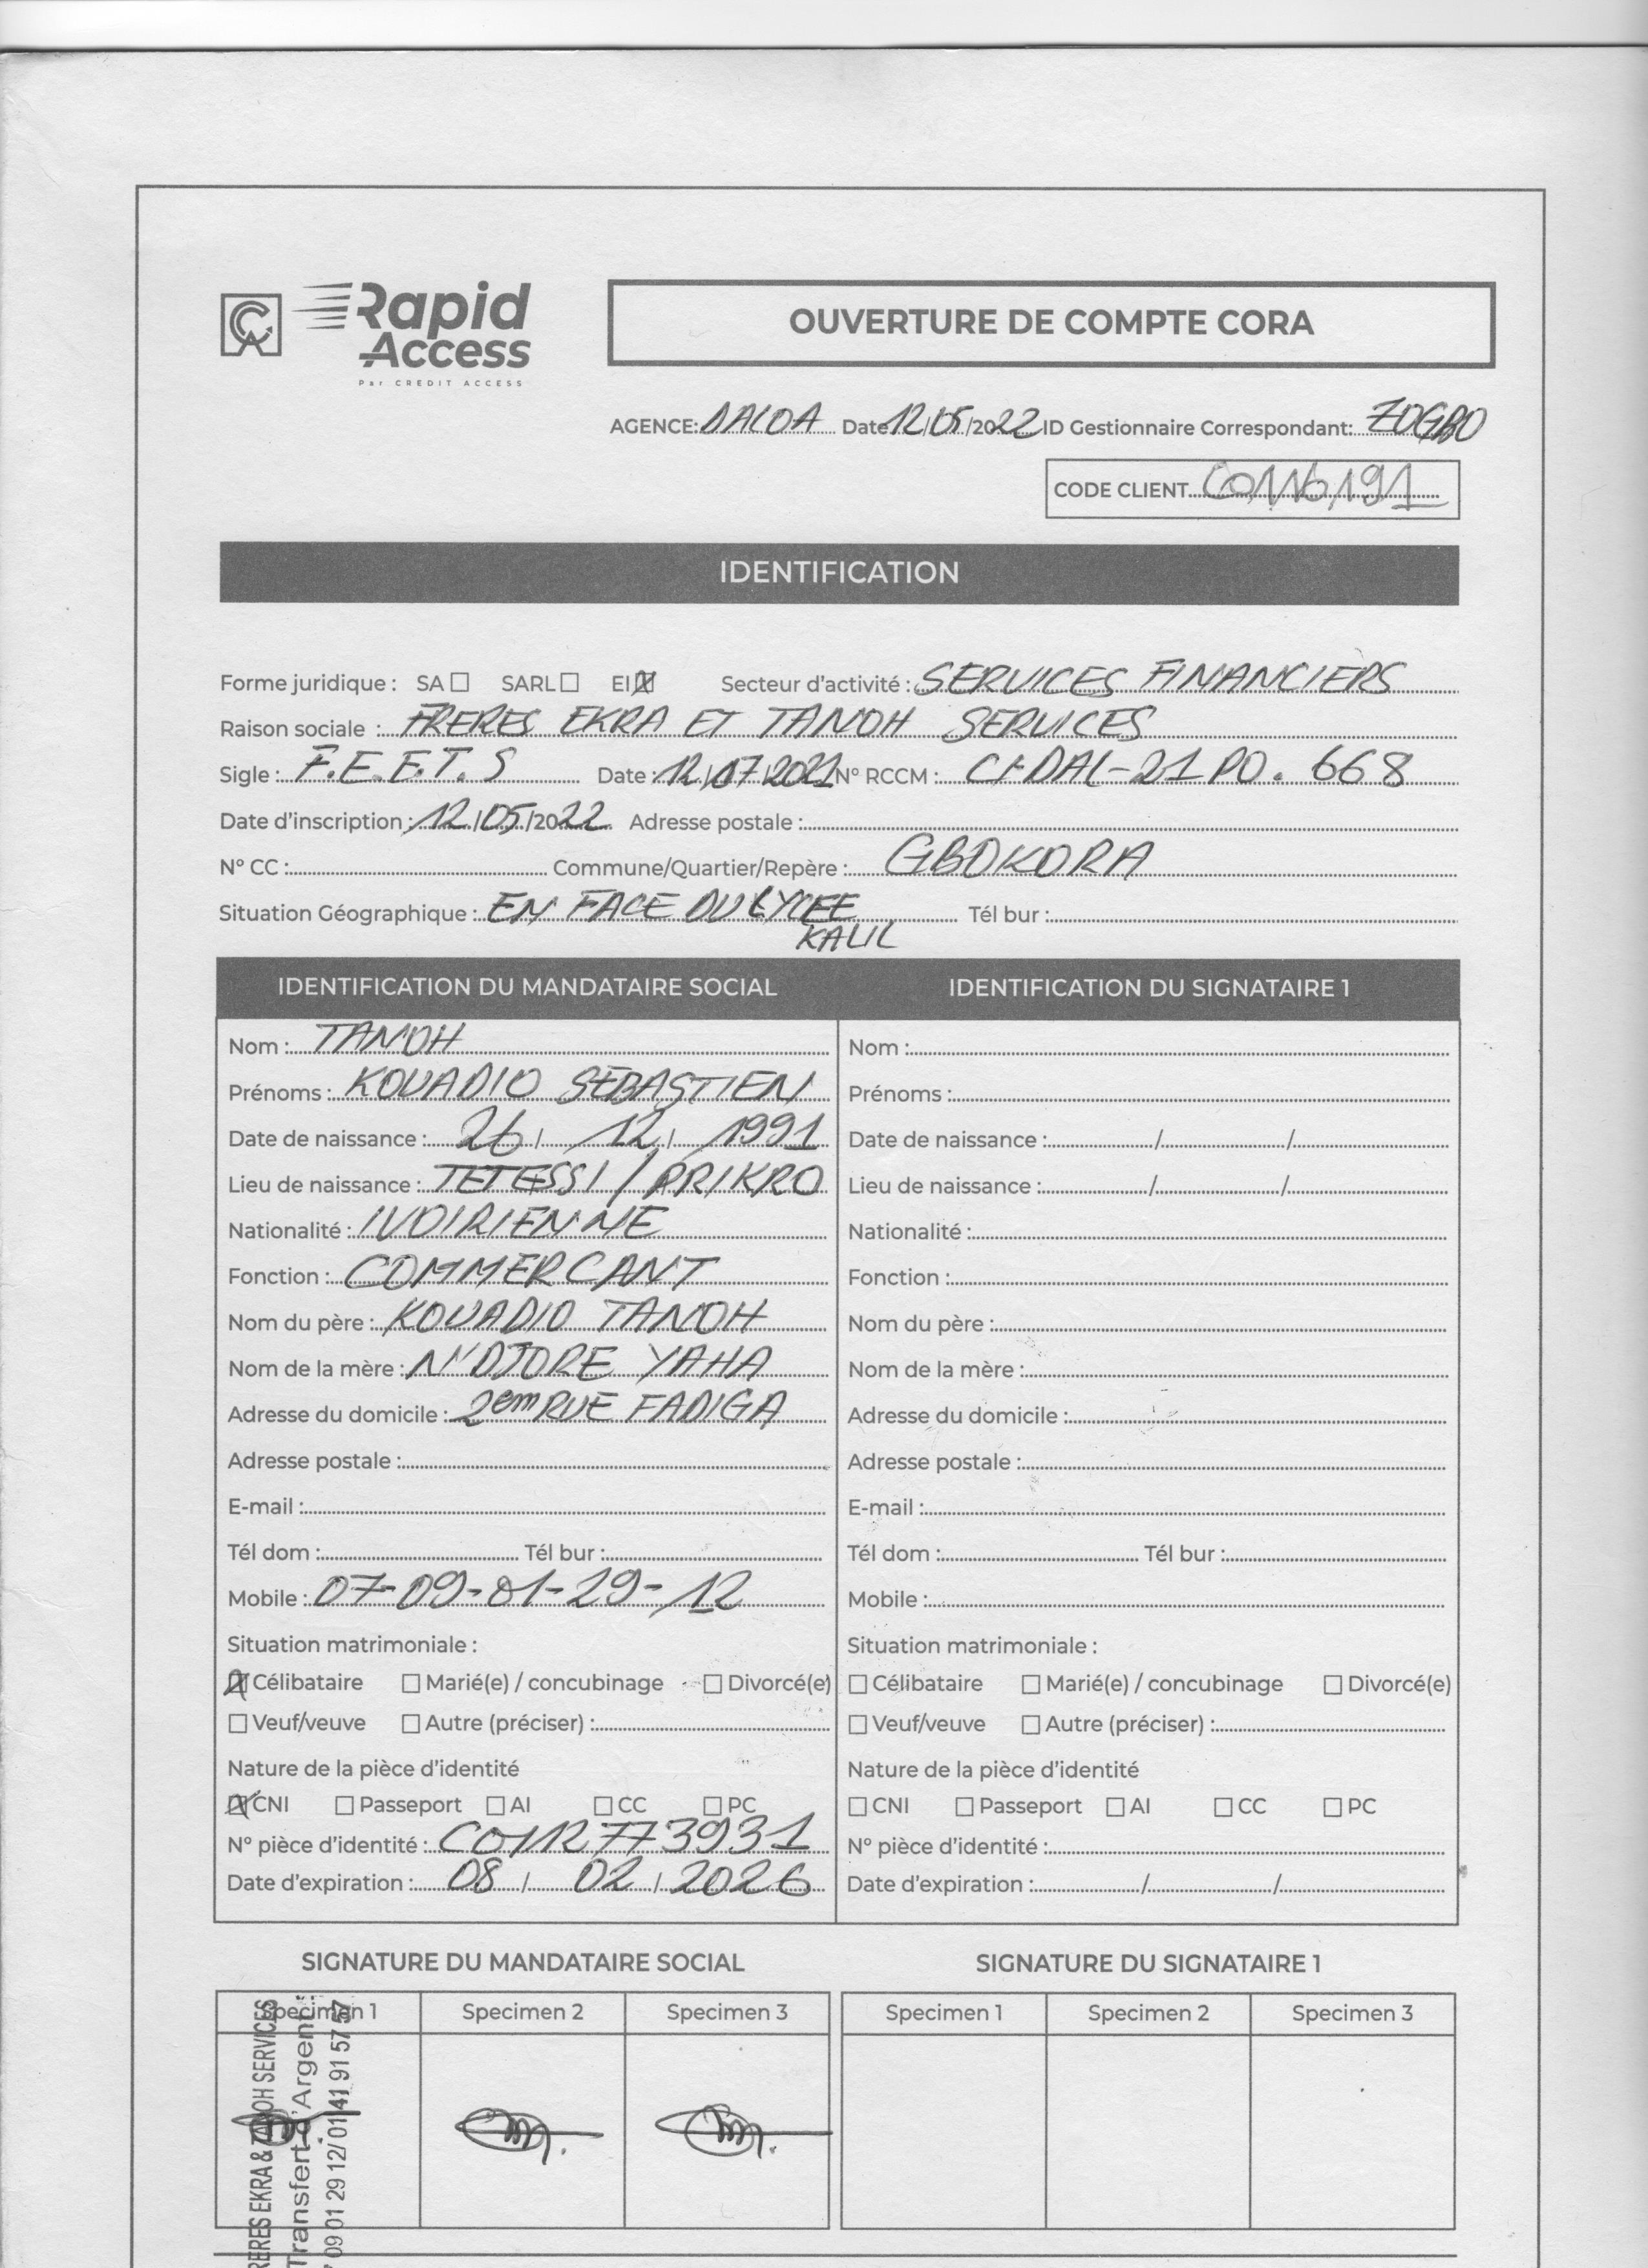 CA Rapid Access
Par CREDIT ACCESS
OUVERTURE DE COMPTE CORA
AGENCE: DALOA Date 12/05/2022 ID Gestionnaire Correspondant: ZOGBO
CODE CLIENT C0116191
IDENTIFICATION
Forme juridique : SA ☐ SARL ☐ EI ☒ Secteur d'activité : SERVICES FINANCIERS
Raison sociale : FRERES EKRA ET TANOH SERVICES
Sigle : F.E.E.T.S Date : 12/07/2021 N° RCCM : CI-DAL-21 PO. 668
Date d'inscription : 12/05/2022 Adresse postale :
N° CC : Commune/Quartier/Repère : GBOKORA
Situation Géographique : EN FACE DU LYCEE Tél bur :
KALIL
IDENTIFICATION DU MANDATAIRE SOCIAL IDENTIFICATION DU SIGNATAIRE 1
Nom : TANOH Nom :
Prénoms : KOUADIO SEBASTIEN Prénoms :
Date de naissance : 26 / 12 / 1991 Date de naissance : / /
Lieu de naissance : TETESSI / PRIKRO Lieu de naissance : / /
Nationalité : IVOIRIENNE Nationalité :
Fonction : COMMERCANT Fonction :
Nom du père : KOUADIO TANOH Nom du père :
Nom de la mère : N'DJORE YAHA Nom de la mère :
Adresse du domicile : 2em RUE FADIGA Adresse du domicile :
Adresse postale : Adresse postale :
E-mail : E-mail :
Tél dom : Tél bur : Tél dom : Tél bur :
Mobile : 07-09-01-29-12 Mobile :
Situation matrimoniale : Situation matrimoniale :
☒ Célibataire ☐ Marié(e) / concubinage ☐ Divorcé(e) ☐ Célibataire ☐ Marié(e) / concubinage ☐ Divorcé(e)
☐ Veuf/veuve ☐ Autre (préciser) : ☐ Veuf/veuve ☐ Autre (préciser) :
Nature de la pièce d'identité Nature de la pièce d'identité
☒ CNI ☐ Passeport ☐ AI ☐ CC ☐ PC ☐ CNI ☐ Passeport ☐ AI ☐ CC ☐ PC
N° pièce d'identité : C0112773931 N° pièce d'identité :
Date d'expiration : 08 / 02 / 2026 Date d'expiration : / /
SIGNATURE DU MANDATAIRE SOCIAL SIGNATURE DU SIGNATAIRE 1
Specimen 1 Specimen 2 Specimen 3 Specimen 1 Specimen 2 Specimen 3
RERES EKRA & TANOH SERVICES
Transfert d'Argent :
09 01 29 12/ 01 41 91 57 57